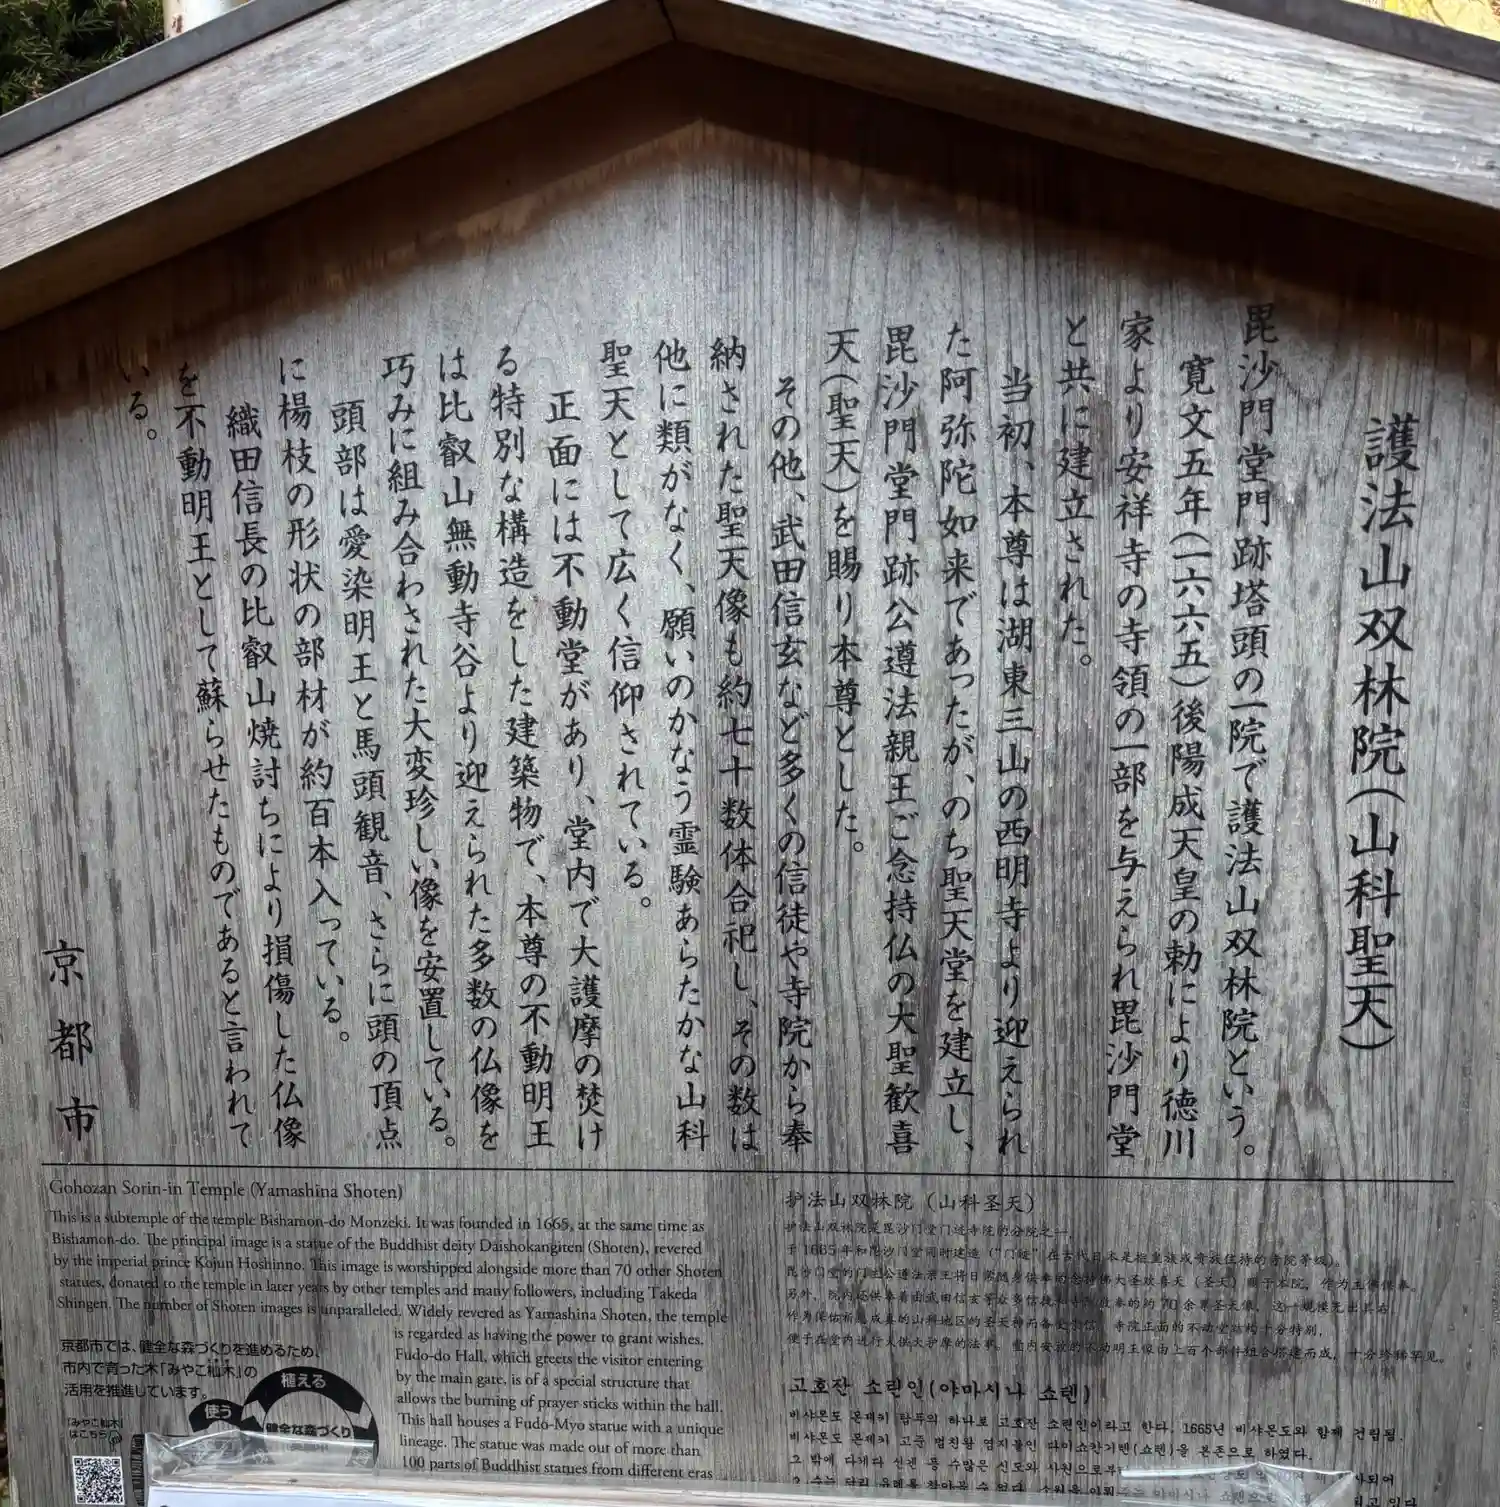 護法山双林院(山科聖天)
毘沙門堂門跡塔頭の一院で護法山双林院という。
寛文五年(一六六五)後陽成天皇の勅により徳川
家より安祥寺の寺領の一部を与えられ毘沙門堂
と共に建立された。
当初、本尊は湖東三山の西明寺より迎えられ
た阿弥陀如来であったが、のち聖天堂を建立し、
毘沙門堂門跡公遵法親王ご念持仏の大聖歓喜
天(聖天)を賜り本尊とした。
その他、武田信玄など多くの信徒や寺院から奉
納された聖天像も約七十数体合祀し、その数は
他に類がなく、願いのかなう霊験あらたかな山科
聖天として広く信仰されている。
正面には不動堂があり、堂内で大護摩の焚け
る特別な構造をした建築物で、本尊の不動明王
は比叡山無動寺谷より迎えられた多数の仏像を
巧みに組み合わされた大変珍しい像を安置している。
頭部は愛染明王と馬頭観音、さらに頭の頂点
に楊枝の形状の部材が約百本入っている。
織田信長の比叡山焼討ちにより損傷した仏像
を不動明王として蘇らせたものであると言われて
いる。
京都市
Gohozan Sorin-in Temple (Yamashina Shoten)
This is a subtemple of the temple Bishamon-do Monzeki. It was founded in 1665, at the same time as
Bishamon-do. The principal image is a statue of the Buddhist deity Daishokangiten (Shoten), revered
by the imperial prince Kojun Hoshinno. This image is worshipped alongside more than 70 other Shoten
statues, donated to the temple in later years by other temples and many followers, including Takeda
Shingen. The number of Shoten images is unparalleled. Widely revered as Yamashina Shoten, the temple
is regarded as having the power to grant wishes.
Fudo-do Hall, which greets the visitor entering
by the main gate, is of a special structure that
allows the burning of prayer sticks within the hall.
This hall houses a Fudo-Myo statue with a unique
lineage. The statue was made out of more than
100 parts of Buddhist statues from different eras
京都市では、健全な森づくりを進めるため、
市内で育った木「みやこ杣木」の
活用を推進しています。
植える
使う
健全な森づくり
「みやこ杣木」
はこちら
护法山双林院（山科圣天）
护法山双林院是毘沙门堂门迹寺院的分院之一,
于1665年和毘沙门堂同时建造（“门迹”在古代日本是指皇族或贵族住持的寺院等级)。
고호잔 소린인(야마시나 쇼텐)
비샤몬도 몬제키 탑두의 하나로 고호잔 소린인이라고 한다. 1665년 비샤몬도와 함께 건립됨.